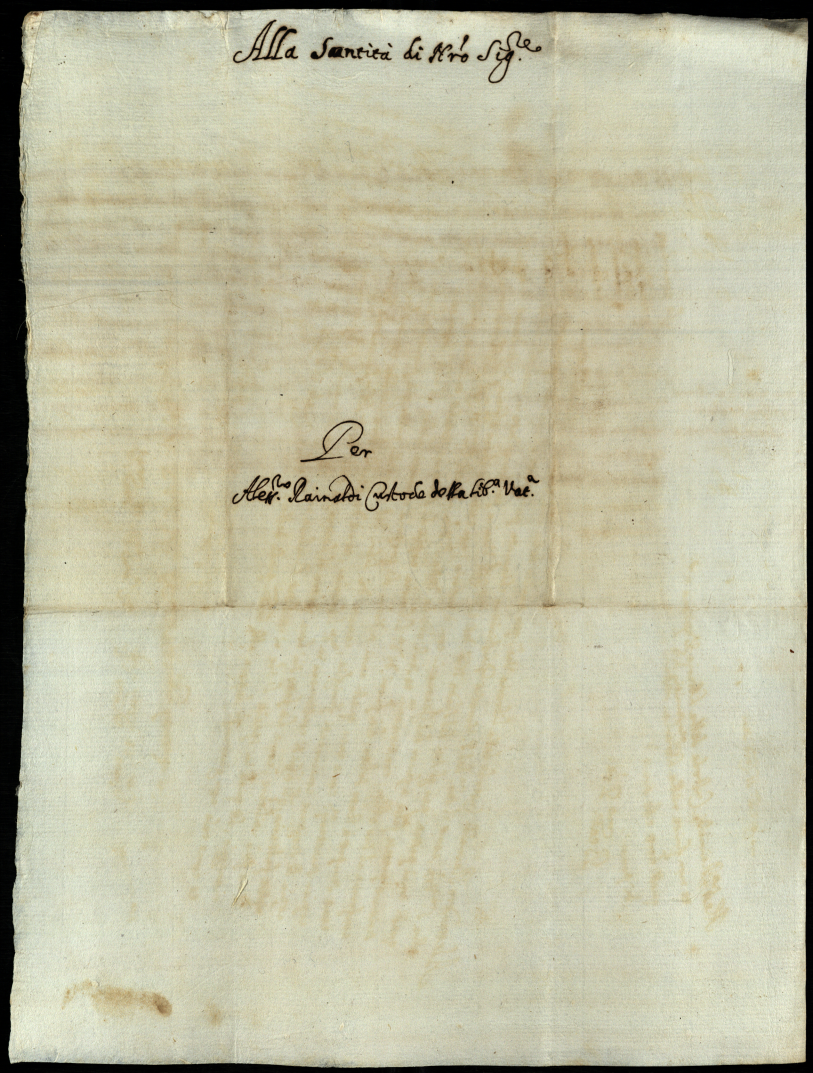 Alla Santità di Nrõ Sig.re
Per
Aless.ro Rainaldi Custode della lib.a Vat.a